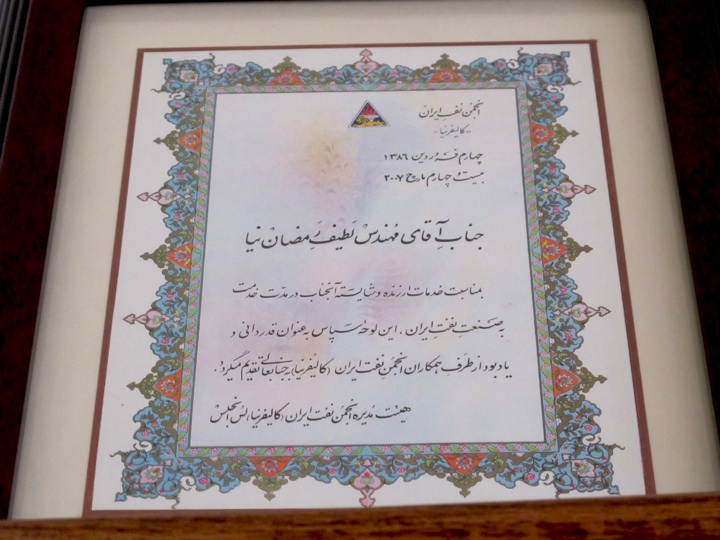 انجمن نفت ایران
-کالیفرنیا-
چهارم فروردین ۱۳۸۶
بیست چهارم مارچ ۲۰۰۷
جناب آقای مهندس لطیف رمضان نیا
بمناسبت خدمات ارزنده و شایسته آنجناب در مدت خدمت
به صنعت نفت ایران . این لوحه سپاس به عنوان قدردانی و
یادبود از طرف همکاران انجمن نفت ایران (کالیفرنیا) بر جنابعالی تقدیم میگردد.
هیئت مدیره انجمن نفت ایران (کالیفرنیا) لس آنجلس